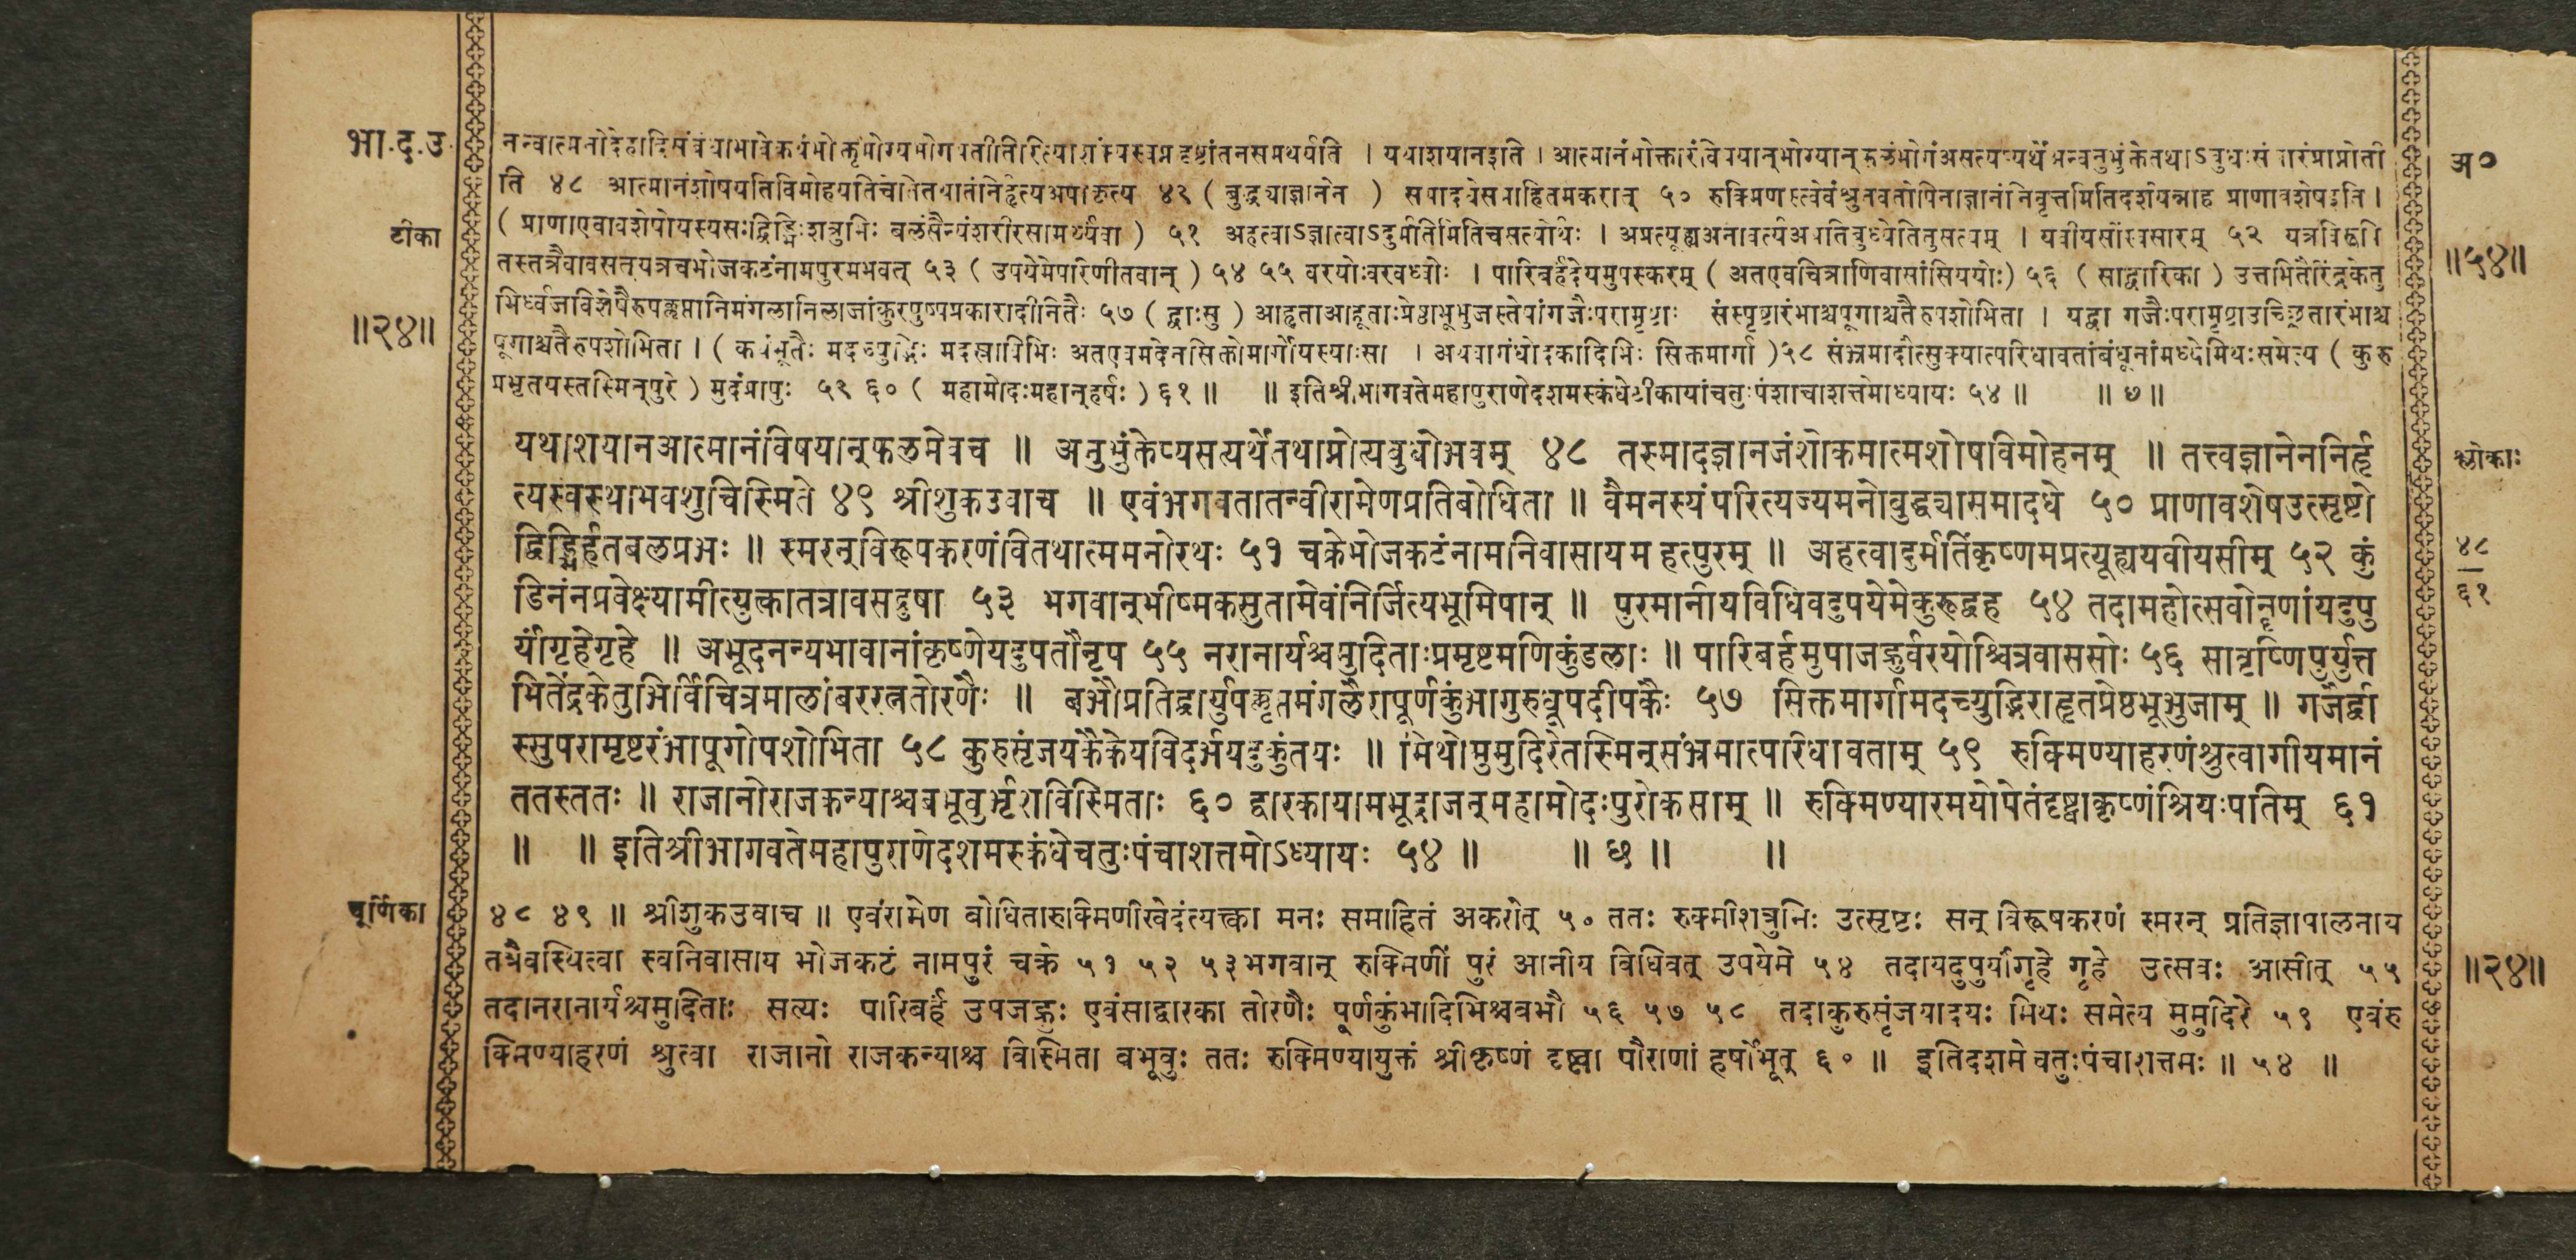 भा.द.उ.
अ०
ति ४८ आत्मानंशोषयतिविमोहयतिच ४९ (बुद्ध्याज्ञानेन) ५० रुक्मिण प्राणावशेषइति।
टीका
(प्राणाएवावशेषोयस्यसःद्विड्भिःशत्रुभिः बलंसैन्यंशरीरसामर्थ्यंवा) ५१ अहत्वाऽज्ञात्वाऽदुर्मतिमितिचसत्योर्थः । यवीयसींस्वसारम् ५२
॥५४॥
तस्तत्रैवावसत्यत्रचभोजकटंनामपुरमभवत् ५३ (उपयेमेपरिणीतवान्) ५४ ५५ वरयोःवरवध्वोः । पारिबर्हंदेयमुपस्करम् (अतएवचित्राणिवासांसिययोः) ५६ (साद्वारिका) उत्तभितैरिंद्रकेतु
भिर्ध्वजविशेषैरुपक्लृप्तानिमंगलानिलाजांकुरपुष्पप्रकारादीनितैः ५७ (द्वाःसु) आहूताआहूताःप्रेष्ठाभूभुजस्तेषांगजैःपरामृष्टाः संस्पृष्टारंभाश्चपूगाश्चतैरुपशोभिता । यद्वा गजैःपरामृष्टाउच्छ्रितारंभाश्च
॥२४॥
पूगाश्चतैरुपशोभिता । मदस्राविभिः अतएवमदेनसिक्तोमार्गोयस्याःसा । अथवागंधोदकादिभिः सिक्तमार्गा) ५८ संभ्रमादौत्सुक्यात्परिधावतांबंधूनांमध्येमिथःसमेत्य (कुरु
प्रभृतयस्तस्मिन्पुरे) मुदंप्रापुः ५९ ६० (महामोदःमहान्हर्षः) ६१ ॥ ॥ इतिश्रीभागवतेमहापुराणेदशमस्कंधेटीकायांचतुःपंशाचाशत्तमोध्यायः ५४ ॥ ॥ छ ॥
यथाशयानआत्मानंविषयान्फलमेवच ॥ अनुभुंक्तेप्यसत्यर्थेतथाप्नोत्यबुधोभवम् ४८ तस्मादज्ञानजंशोकमात्मशोषविमोहनम् ॥ तत्त्वज्ञानेननिर्हृ
श्लोकाः
त्यस्वस्थाभवशुचिस्मिते ४९ श्रीशुकउवाच ॥ एवंभगवतातन्वीरामेणप्रतिबोधिता ॥ वैमनस्यंपरित्यज्यमनोबुद्ध्यासमादधे ५० प्राणावशेषउत्सृष्टो
द्विड्भिर्हतबलप्रभः ॥ स्मरन्विरूपकरणंवितथात्ममनोरथः ५१ चक्रेभोजकटंनामनिवासायमहत्पुरम् ॥ अहत्वादुर्मतिंकृष्णमप्रत्यूह्ययवीयसीम् ५२ कुं
४८
डिनंनप्रवेक्ष्यामीत्युक्त्वातत्रावसद्रुषा ५३ भगवान्भीष्मकसुतामेवंनिर्जित्यभूमिपान् ॥ पुरमानीयविधिवदुपयेमेकुरूद्वह ५४ तदामहोत्सवोनॄणांयदुपु
६१
र्यांगृहेगृहे ॥ अभूदनन्यभावानांकृष्णेयदुपतौनृप ५५ नरानार्यश्चमुदिताःप्रमृष्टमणिकुंडलाः ॥ पारिबर्हमुपाजह्रुर्वरयोश्चित्रवाससोः ५६ सावृष्णिपुर्युत्त
भितेंद्रकेतुभिर्विचित्रमालांबररत्नतोरणैः ॥ बभौप्रतिद्वार्युपक्लृप्तमंगलैरापूर्णकुंभागुरुधूपदीपकैः ५७ सिक्तमार्गामदच्युद्भिराहूतप्रेष्ठभूभुजाम् ॥ गजैर्द्वा
स्सुपरामृष्टरंभापूगोपशोभिता ५८ कुरुसृंजयकैकेयविदर्भयदुकुंतयः ॥ मिथोमुमुदिरेतस्मिन्संभ्रमात्परिधावताम् ५९ रुक्मिण्याहरणंश्रुत्वागीयमानं
ततस्ततः ॥ राजानोराजकन्याश्चबभूवुर्भृशविस्मिताः ६० द्वारकायामभूद्राजन्महामोदःपुरोकसाम् ॥ रुक्मिण्यारमयोपेतंदृष्ट्वाकृष्णंश्रियःपतिम् ६१
॥ ॥ इतिश्रीभागवतेमहापुराणेदशमस्कंधेचतुःपंचाशत्तमोऽध्यायः ५४ ॥ ॥ छ ॥ ॥
चूर्णिका
४८ ४९ ॥ श्रीशुकउवाच ॥ एवंरामेण बोधितारुक्मिणीखेदंत्यक्त्वा मनः समाहितं अकरोत् ५० ततः रुक्मीशत्रुभिः उत्सृष्टः सन् विरूपकरणं स्मरन् प्रतिज्ञापालनाय
तत्रैवस्थित्वा स्वनिवासाय भोजकटं नामपुरं चक्रे ५१ ५२ ५३ भगवान् रुक्मिणीं पुरं आनीय विधिवत् उपयेमे ५४ तदायदुपुर्यांगृहे गृहे उत्सवः आसीत् ५५
॥२४॥
तदानरानार्यश्चमुदिताः सत्यः पारिबर्हं उपजह्रुः एवंसाद्वारका तोरणैः पूर्णकुंभादिभिश्चबभौ ५६ ५७ ५८ तदाकुरुसृंजयादयः मिथः समेत्य मुमुदिरे ५९ एवंरु
क्मिण्याहरणं श्रुत्वा राजानो राजकन्याश्च विस्मिता बभूवुः ततः रुक्मिण्यायुक्तं श्रीकृष्णं दृष्ट्वा पौराणां हर्षोभूत् ६० ॥ इतिदशमे चतुःपंचाशत्तमः ॥ ५४ ॥